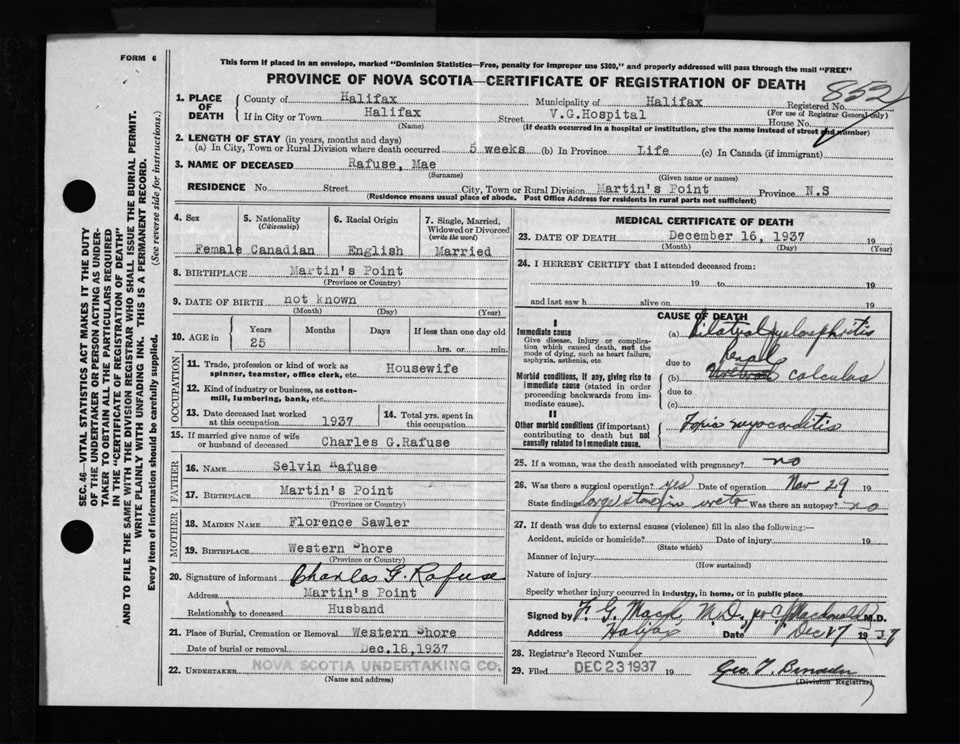 FORM 6
This form if placed in an envelope, marked "Dominion Statistics—Free, penalty for improper use $300," and properly addressed will pass through the mail "FREE"
PROVINCE OF NOVA SCOTIA—CERTIFICATE OF REGISTRATION OF DEATH
852
1. PLACE OF DEATH
County of Halifax Municipality of Halifax Registered No.
(For use of Registrar General only)
If in City or Town Halifax Street V.G.Hospital House No.
(Name) (If death occurred in a hospital or institution, give the name instead of street and number)
2. LENGTH OF STAY (in years, months and days)
(a) In City, Town or Rural Division where death occurred 5 weeks (b) In Province Life (c) In Canada (if immigrant)
3. NAME OF DECEASED Rafuse, Mae
(Surname) (Given name or names)
RESIDENCE No. Street City, Town or Rural Division Martin's Point Province N.S
(Residence means usual place of abode. Post Office Address for residents in rural parts not sufficient)
4. Sex 5. Nationality (Citizenship) 6. Racial Origin 7. Single, Married, Widowed or Divorced (write the word)
Female Canadian English Married
8. BIRTHPLACE Martin's Point
(Province or Country)
9. DATE OF BIRTH not known
(Month) (Day) (Year)
10. AGE in Years Months Days If less than one day old
25 hrs. or min.
OCCUPATION
11. Trade, profession or kind of work as spinner, teamster, office clerk, etc. Housewife
12. Kind of industry or business, as cotton-mill, lumbering, bank, etc.
13. Date deceased last worked at this occupation 1937
14. Total yrs. spent in this occupation
15. If married give name of wife or husband of deceased Charles G.Rafuse
FATHER
16. NAME Selvin Rafuse
17. BIRTHPLACE Martin's Point
(Province or Country)
MOTHER
18. MAIDEN NAME Florence Sawler
19. BIRTHPLACE Western Shore
(Province or Country)
20. Signature of informant Charles G. Rafuse
Address Martin's Point
Relationship to deceased Husband
21. Place of Burial, Cremation or Removal Western Shore
Date of burial or removal Dec.18,1937
22. UNDERTAKER NOVA SCOTIA UNDERTAKING CO.
(Name and address)
MEDICAL CERTIFICATE OF DEATH
23. DATE OF DEATH December 16, 1937 19
(Month) (Day) (Year)
24. I HEREBY CERTIFY that I attended deceased from:
19 to 19
and last saw h alive on 19
CAUSE OF DEATH
I
Immediate cause
Give disease, injury or complication which caused death, not the mode of dying, such as heart failure, asphyxia, asthenia, etc.
(a) Bilateral pyelonephritis
due to
Morbid conditions, if any, giving rise to immediate cause (stated in order proceeding backwards from immediate cause).
(b) Renal calculus
due to
(c)
II
Other morbid conditions (if important) contributing to death but not causally related to immediate cause.
Toxic myocarditis
25. If a woman, was the death associated with pregnancy? no
26. Was there a surgical operation? yes Date of operation Nov 29 19
State findings large stone in Was there an autopsy? no
27. If death was due to external causes (violence) fill in also the following:—
Accident, suicide or homicide? Date of injury 19
(State which)
Manner of injury
(How sustained)
Nature of injury
Specify whether injury occurred in industry, in home, or in public place
Signed by F. G. Mack, M.D., M.D.
Address Halifax Date Dec 17 1937
28. Registrar's Record Number
29. Filed DEC 23 1937 19 Geo. T.
(Division Registrar)
SEC. 46—VITAL STATISTICS ACT MAKES IT THE DUTY
OF THE UNDERTAKER OR PERSON ACTING AS UNDER-
TAKER TO OBTAIN ALL THE PARTICULARS REQUIRED
IN THE "CERTIFICATE OF REGISTRATION OF DEATH"
AND TO FILE THE SAME WITH THE DIVISION REGISTRAR WHO SHALL ISSUE THE BURIAL PERMIT.
WRITE PLAINLY WITH UNFADING INK. THIS IS A PERMANENT RECORD.
Every item of information should be carefully supplied. (See reverse side for instructions.)